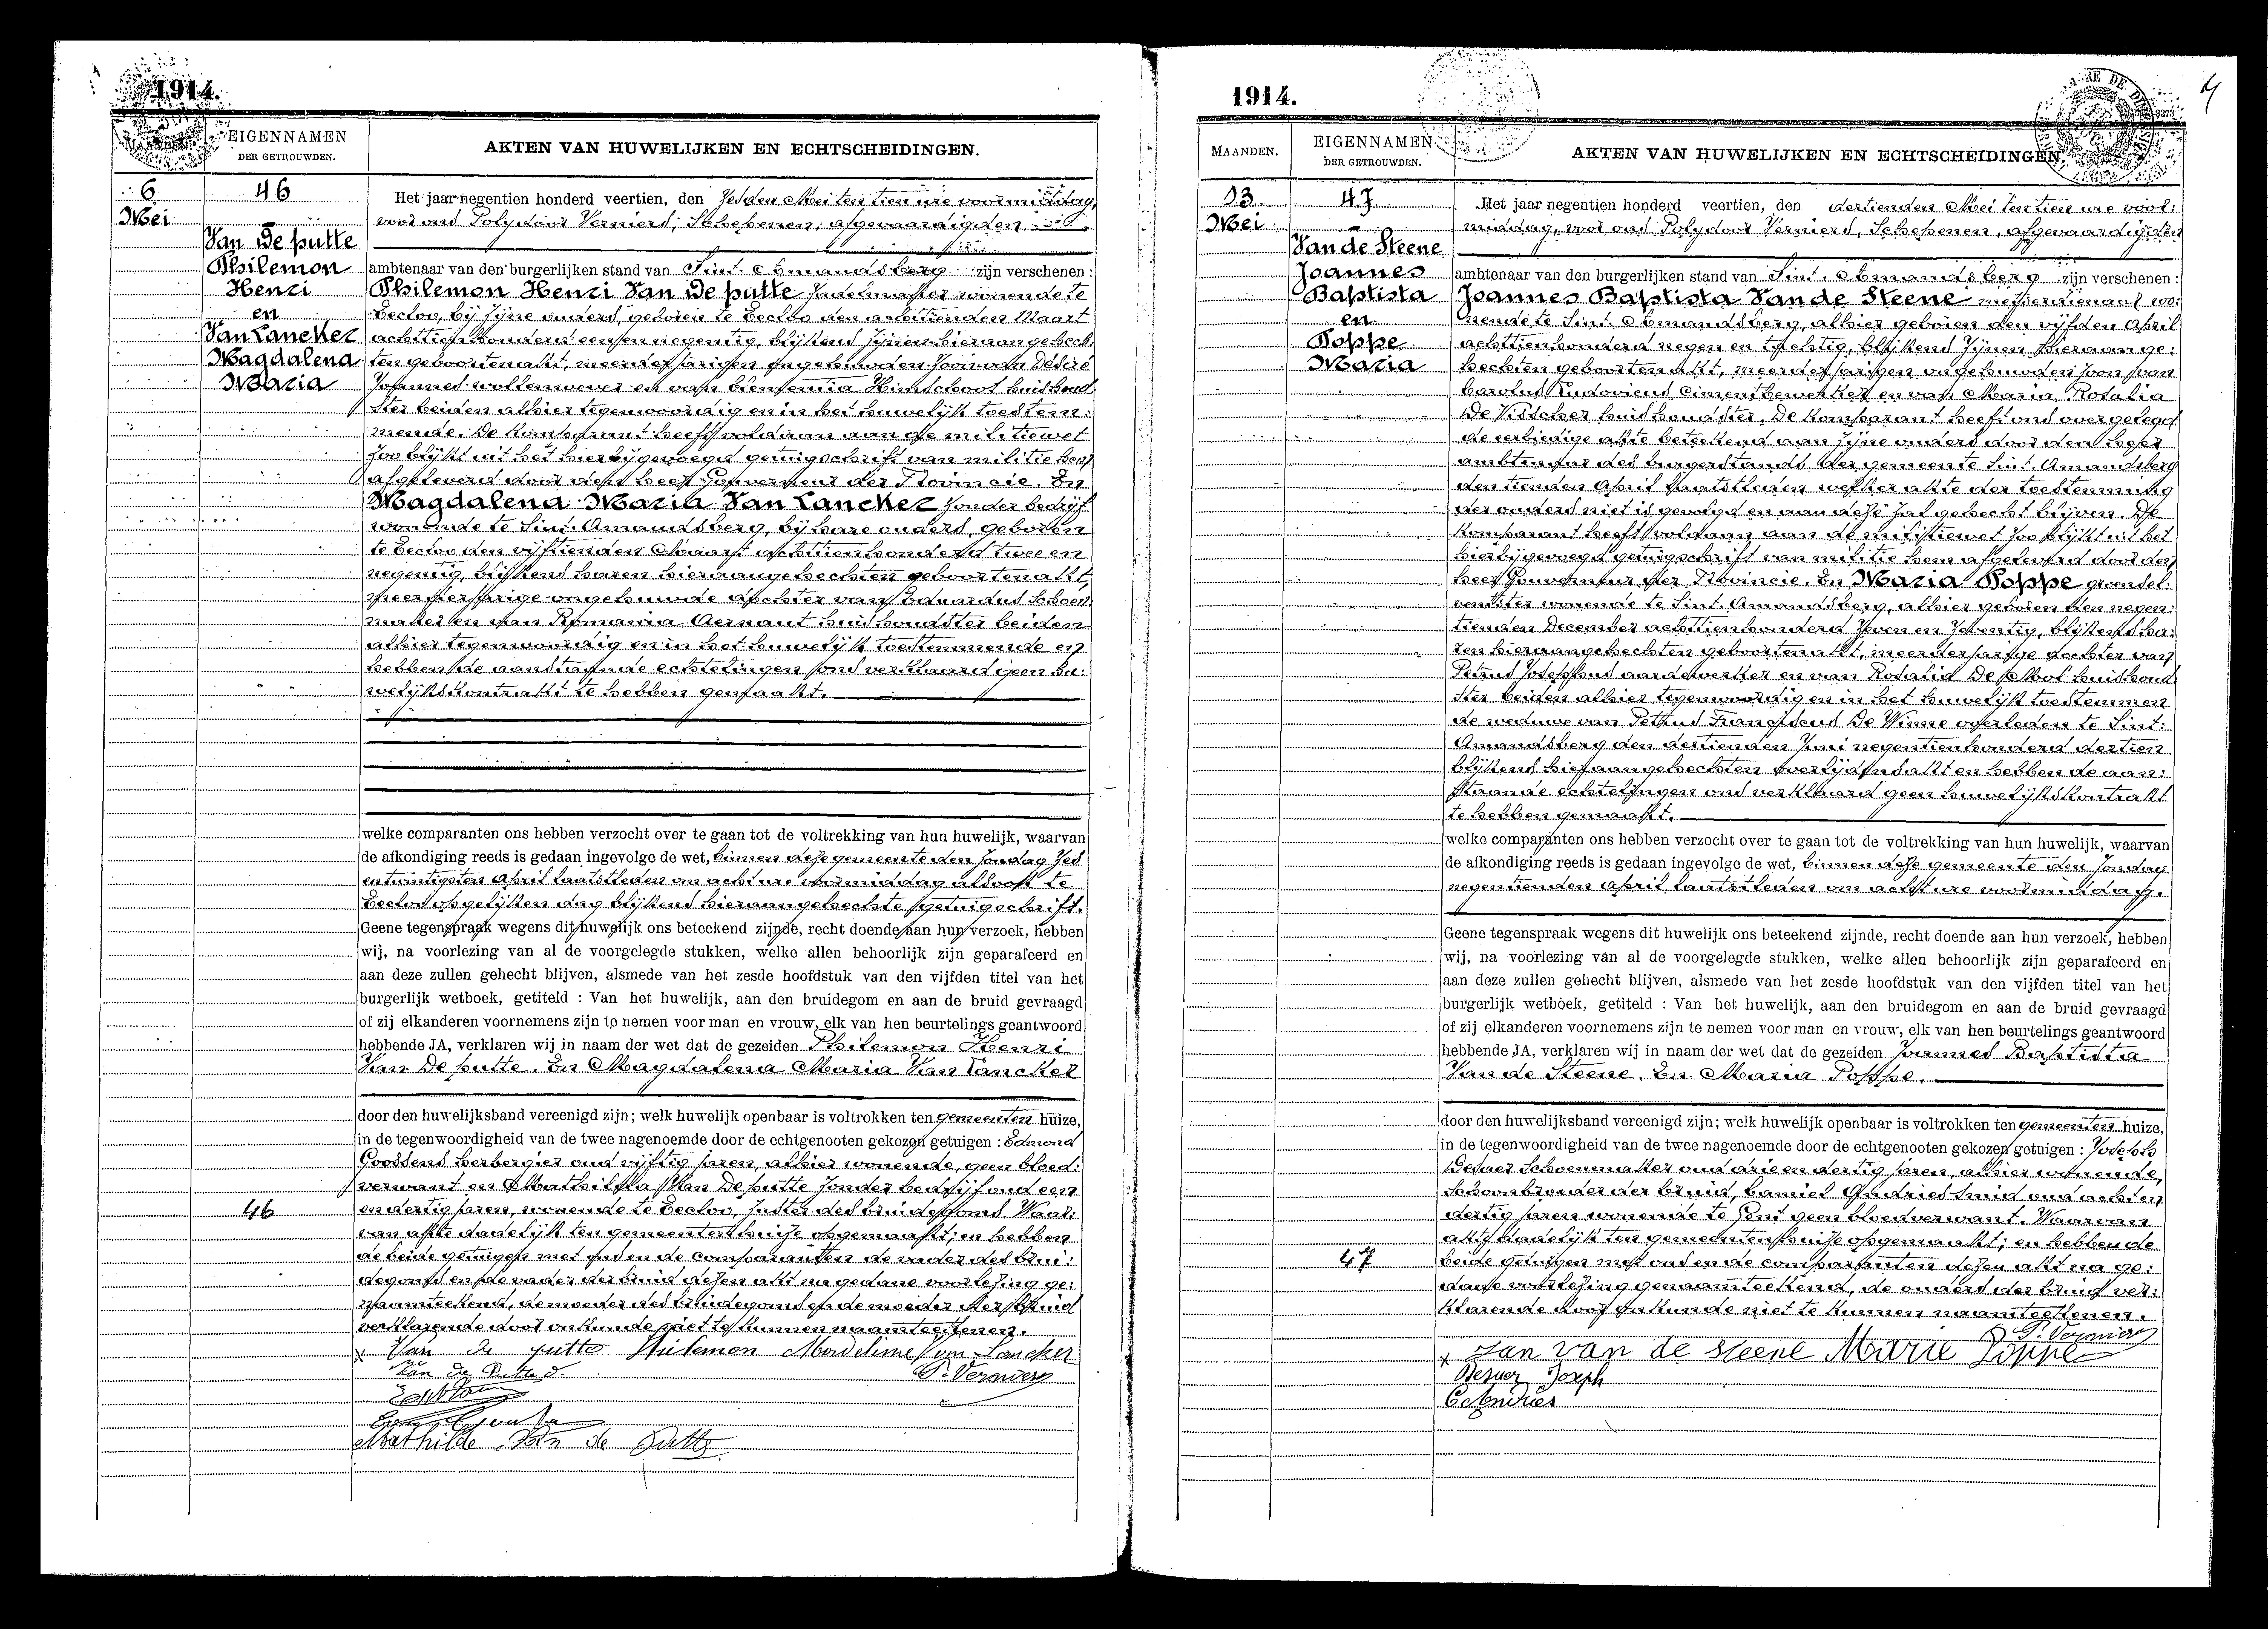 1914.
EIGENNAMEN
DER GETROUWDEN.
AKTEN VAN HUWELIJKEN EN ECHTSCHEIDINGEN.
6
Mei
46
Van De putte
Philemon
Henri
en
Van Lancker
Magdalena
Maria
Het jaar negentien honderd veertien, den zesden Mei ten tien ure voormiddag,
voor ons Polydoor Verniers, Schepenen, afgevaardigden
ambtenaar van den burgerlijken stand van Sint-Amandsberg zijn verschenen :
Philemon Henri Van De putte wonende te
Eecloo, bij zijne ouders, geboren te Eecloo den achttienden Maart
achttienhonderd een en negentig, blijkens zijnen hieraangehech:
ten geboortenakt, meerderjarigen ongehuwden zoon van Désiré
Joannes wollenwever en van huishoud:
ster beiden alhier tegenwoordig en in het huwelijk toestem:
mende. De Komparant heeft voldaan aan de militiewet
zoo blijkt uit het hierbijgevoegd getuigschrift van militie hem
afgeleverd door den heer Gouverneur der Provincie. En
Magdalena Maria Van Lancker zonder bedrijf
wonende te Sint-Amandsberg, bij hare ouders, geboren
te Eecloo den vijftienden Maart achttienhonderd twee en
negentig, blijkens haren hieraangehechten geboortenakt,
meerderjarige ongehuwde dochter van Eduardus schoen:
maker en van Romania Aernaut huishoudster beiden
alhier tegenwoordig en in het huwelijk toestemmende en
hebben de aanstaande echtelingen ons verklaard geen hu:
welijkskontrakt te hebben gemaakt.
welke comparanten ons hebben verzocht over te gaan tot de voltrekking van hun huwelijk, waarvan
de afkondiging reeds is gedaan ingevolge de wet, binnen deze gemeente den zondag zes
en twintigsten April laatstleden om acht ure voormiddag alsook te
Eecloo op gelijken dag blijkens hieraangehechte getuigschrift.
Geene tegenspraak wegens dit huwelijk ons beteekend zijnde, recht doende aan hun verzoek, hebben
wij, na voorlezing van al de voorgelegde stukken, welke allen behoorlijk zijn geparafeerd en
aan deze zullen gehecht blijven, alsmede van het zesde hoofdstuk van den vijfden titel van het
burgerlijk wetboek, getiteld : Van het huwelijk, aan den bruidegom en aan de bruid gevraagd
of zij elkanderen voornemens zijn te nemen voor man en vrouw, elk van hen beurtelings geantwoord
hebbende JA, verklaren wij in naam der wet dat de gezeiden Philemon Henri
Van De putte. En Magdalena Maria Van Lancker
door den huwelijksband vereenigd zijn; welk huwelijk openbaar is voltrokken ten gemeenten huize,
in de tegenwoordigheid van de twee nagenoemde door de echtgenooten gekozen getuigen : Edmond
Goossens herbergier oud vijftig jaren, alhier wonende, geen bloed:
verwant en Mathilda Van De putte zonder bedrijf oud een
en dertig jaren, wonende te Eecloo, zuster des bruidegoms. Waar:
46
van akte dadelijk ten gemeentenhuize opgemaakt; en hebben
de beide getuigen met ons en de comparanten de vader des brui:
degoms en de vader der bruid dezen akt na gedane voorlezing ge:
naamteekend, de moeder des bruidegoms en de moeder der bruid
verklarende door onkunde niet te kunnen naamteekenen.
x Van de putte Philemon Madeleine Van Lancker
Van de Putte d. P. Verniers
Mathilde Van de Putte
1914.
MAANDEN.
EIGENNAMEN
DER GETROUWDEN.
AKTEN VAN HUWELIJKEN EN ECHTSCHEIDINGEN.
13
Mei
47
Van de Steene
Joannes
Baptista
en
Poppe
Maria
Het jaar negentien honderd veertien, den dertienden Mei ten tien ure voor:
middag, voor ons Polydoor Verniers, Schepenen, afgevaardigden
ambtenaar van den burgerlijken stand van Sint-Amandsberg zijn verschenen :
Joannes Baptista Van de Steene metserdienaar wo:
nende te Sint-Amandsberg, alhier geboren den vijfden April
achttienhonderd negen en tachtig, blijkens zijnen hieraan ge:
hechten geboortenakt, meerderjarigen ongehuwden zoon van
Carolus Ludovicus cimentbewerker en van Maria Rosalia
De Visscher huishoudster. De Komparant heeft ons overgelegd
de eerbiedige akte beteekend aan zijne ouders door den heer
ambtenaar des burgerstands der gemeente Sint-Amandsberg
den tienden April laatstleden welker akte der toestemming
der ouders niet is gevolgd en aan deze zal gehecht blijven. De
Komparant heeft voldaan aan de militiewet zoo blijkt uit het
hierbijgevoegd getuigschrift van militie hem afgeleverd door den
heer Gouverneur der Provincie. En Maria Poppe groensel:
ventster wonende te Sint-Amandsberg, alhier geboren den negen:
tienden December achttienhonderd zeven en zeventig, blijkens ha:
ren hieraangehechten geboortenakt, meerderjarige dochter van
Petrus Josephus aardewerker en van Rosalia huishoud:
ster beiden alhier tegenwoordig en in het huwelijk toestemmen
de weduwe van Petrus Franciscus De Winne overleden te Sint:
Amandsberg den dertienden Juni negentienhonderd dertien
blijkens hieraangehechten overlijdensakt en hebben de aan:
staande echtelingen ons verklaard geen huwelijkskontrakt
te hebben gemaakt.
welke comparanten ons hebben verzocht over te gaan tot de voltrekking van hun huwelijk, waarvan
de afkondiging reeds is gedaan ingevolge de wet, binnen deze gemeente den zondag
negentienden April laatstleden om acht ure voormiddag.
Geene tegenspraak wegens dit huwelijk ons beteekend zijnde, recht doende aan hun verzoek, hebben
wij, na voorlezing van al de voorgelegde stukken, welke allen behoorlijk zijn geparafeerd en
aan deze zullen gehecht blijven, alsmede van het zesde hoofdstuk van den vijfden titel van het
burgerlijk wetboek, getiteld : Van het huwelijk, aan den bruidegom en aan de bruid gevraagd
of zij elkanderen voornemens zijn te nemen voor man en vrouw, elk van hen beurtelings geantwoord
hebbende JA, verklaren wij in naam der wet dat de gezeiden Joannes Baptista
Van de Steene. En Maria Poppe.
door den huwelijksband vereenigd zijn; welk huwelijk openbaar is voltrokken ten gemeenten huize,
in de tegenwoordigheid van de twee nagenoemde door de echtgenooten gekozen getuigen : Joseph
schoenmaker oud drie en dertig jaren, alhier wonende,
schoonbroeder der bruid, Camiel Andries smid oud acht en
dertig jaren wonende te Gent geen bloedverwant. Waarvan
akte dadelijk ten gemeentenhuize opgemaakt; en hebben de
47
beide getuigen met ons en de comparanten dezen akt na ge:
dane voorlezing genaamteekend, de ouders der bruid ver:
klarende door onkunde niet te kunnen naamteekenen.
P. Verniers
x Jan van de Steene Marie Poppe
Joseph
C Andries